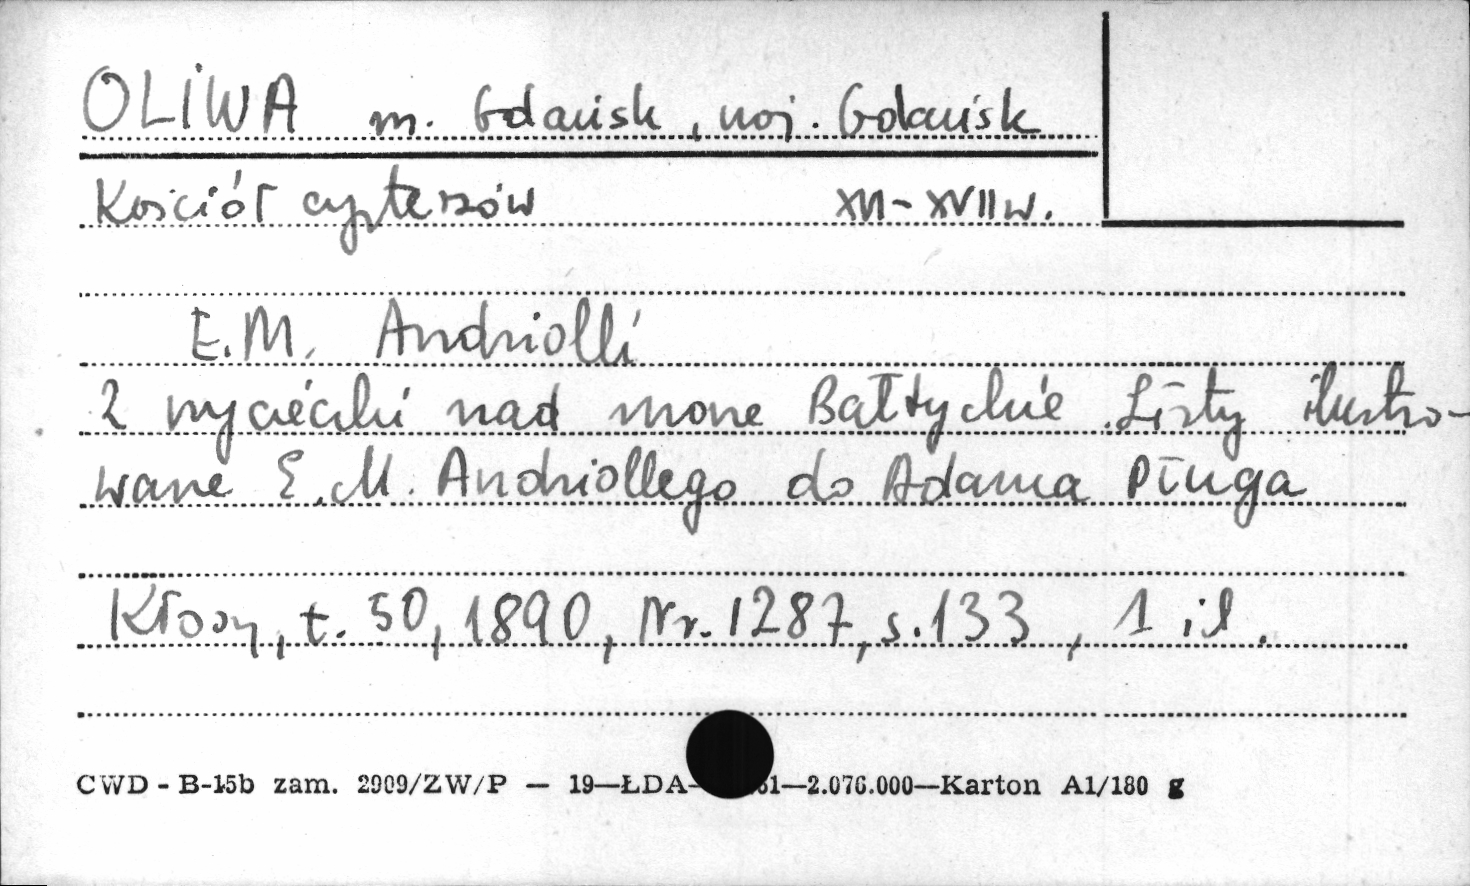 OLIWA m. Gdańsk, woj. Gdańsk
Kościół cystersów XVI-XVII w.
E.M. Andriolli
Z wycieczki nad morze Bałtyckie. Listy ilustro-
wane E.M. Andriollego do Adama Pługa
Kłosy, t. 50, 1890, Nr. 1287, s. 133, 1 il.
CWD - B-15b zam. 2909/ZW/P — 19—ŁDA- 61—2.076.000—Karton A1/180 g